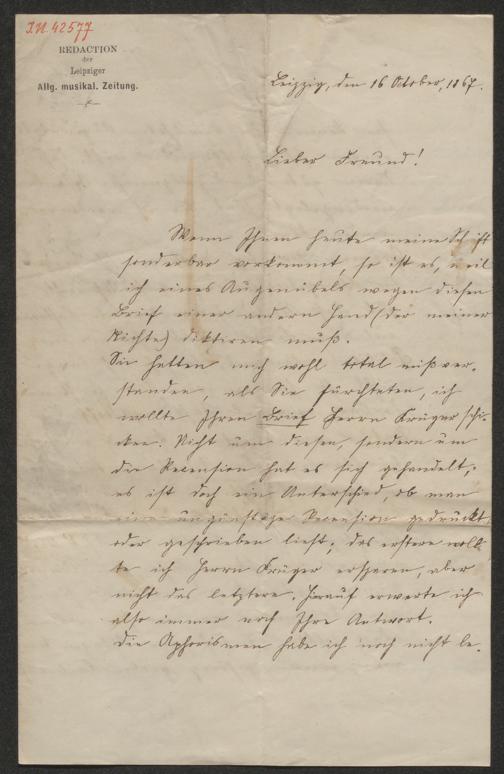 I.N. 42577
REDACTION
der
Leipziger
Allg. musikal. Zeitung.
Leipzig, den 16 October, 1867.
Lieber Freund!
Wenn Ihnen heute meine Schrift
sonderbar vorkommt, so ist es, weil
ich eines Augenübels wegen diesen
Brief einer andern Hand (der meiner
Nichte) diktiren muß.
Sie hatten mich wohl total mißver-
standen, als Sie fürchteten, ich
wollte Ihren Brief Herrn Krüger schi-
cken. Nicht um diesen, sondern um
die Recension hat es sich gehandelt;
es ist doch ein Unterschied, ob man
eine ungünstige Recension gedruckt
oder geschrieben liest; das erstere woll-
te ich Herrn Krüger ersparen, aber
nicht das letztere. Hierauf erwarte ich
also immer noch Ihre Antwort.
Die Aphorismen habe ich noch nicht le-